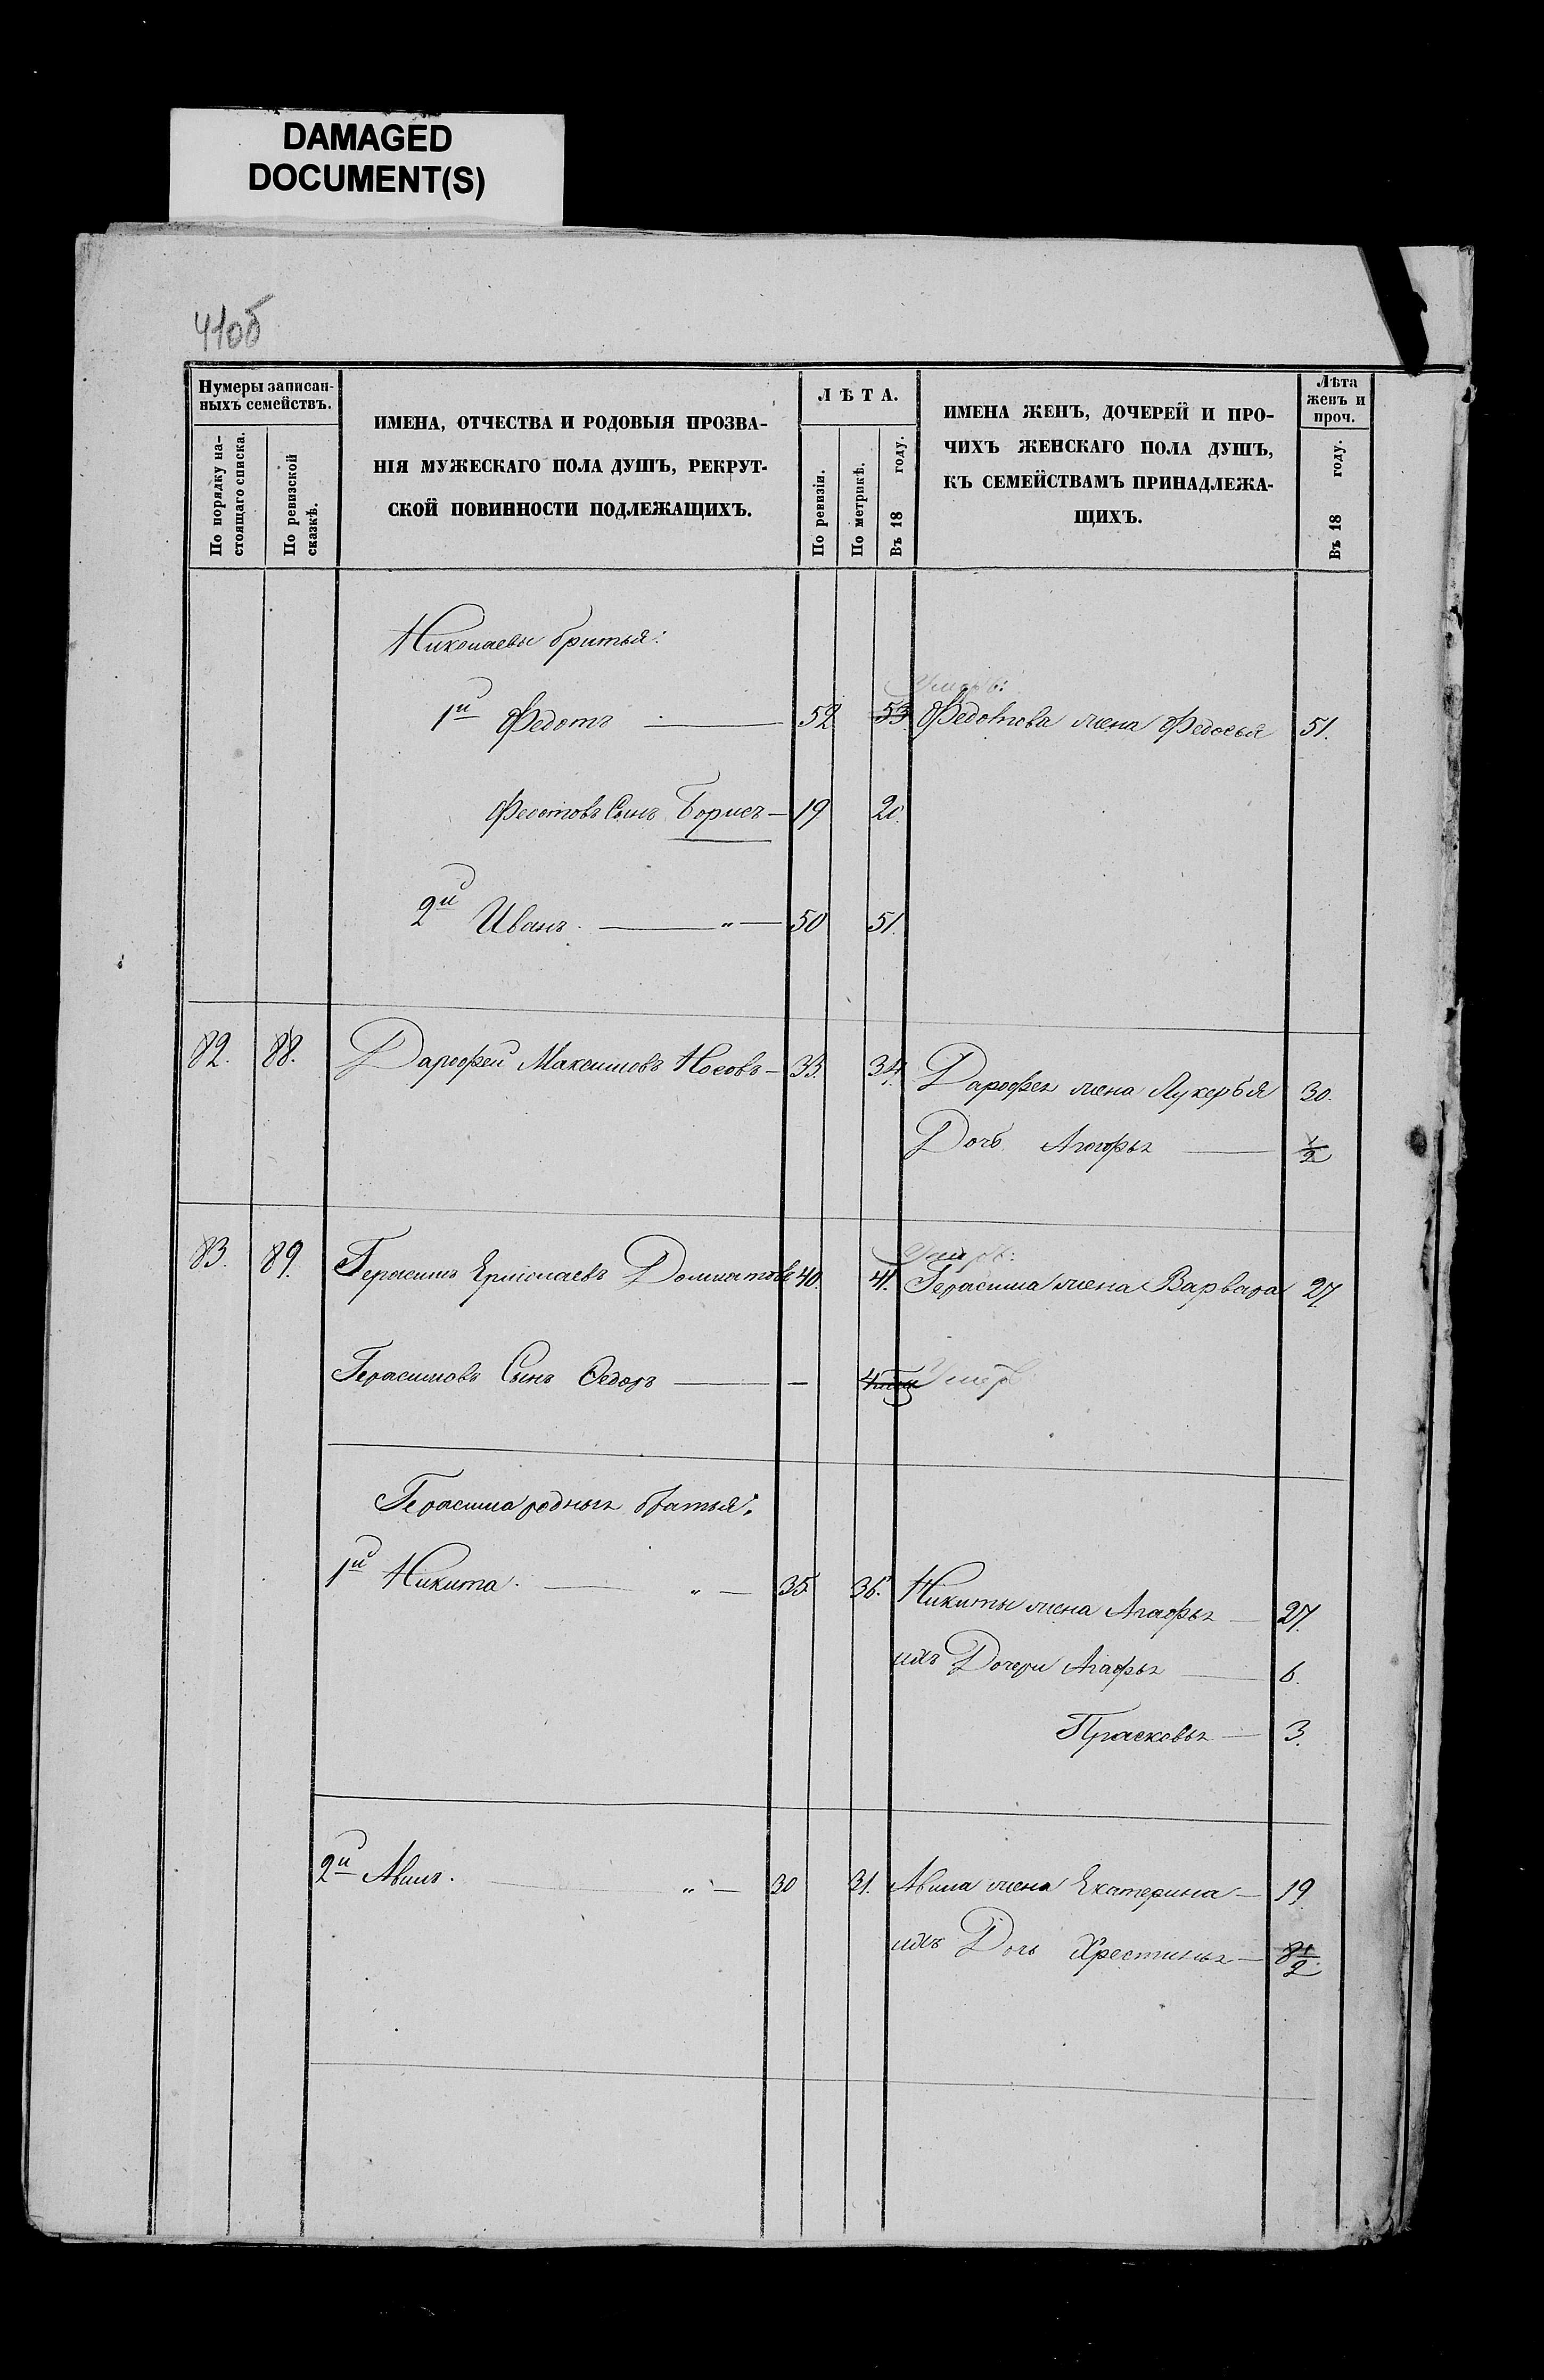 DAMAGED
DOCUMENT(S)
41об
Нумеры записан-
ныхъ семействъ.
По порядку на-
стоящаго списка.
По ревизской
сказкѣ.
ИМЕНА, ОТЧЕСТВА И РОДОВЫЯ ПРОЗВА-
НІЯ МУЖЕСКАГО ПОЛА ДУШЪ, РЕКРУТ-
СКОЙ ПОВИННОСТИ ПОДЛЕЖАЩИХЪ.
ЛѢТА.
По ревизіи.
По метрикѣ.
Въ 18 году.
ИМЕНА ЖЕНЪ, ДОЧЕРЕЙ И ПРО-
ЧИХЪ ЖЕНСКАГО ПОЛА ДУШЪ,
КЪ СЕМЕЙСТВАМЪ ПРИНАДЛЕЖА-
ЩИХЪ.
Лѣта
женъ и
проч.
Въ 18 году.
Николаевы братья:
Умеръ:
1й Федотъ — 52 53. Федотова жена Федосья 51.
Федотовъ Сынъ Борисъ — 19 20.
2й Иванъ. — „ — 50 51.
82. 88. Дарофей Максимовъ Носовъ — 33. 34. Дарофея жена Лукерья 30.
Дочь Агафья — 1/2
Умеръ:
83. 89. Герасимъ Ермолаевъ Долматовъ 40. 41. Герасима жена Варвара 27.
Герасимовъ Сынъ Ѳедоръ — — Умеръ
Герасима родныя братья:
1й Никита. — „ — 35 36. Никиты жена Агафья — 27.
ихъ Дочери Агафья — 6.
Прасковья — 3.
2й Авимъ. — „ — 30 31. Авима жена Екатерина — 19.
ихъ Дочь Хрестинья —